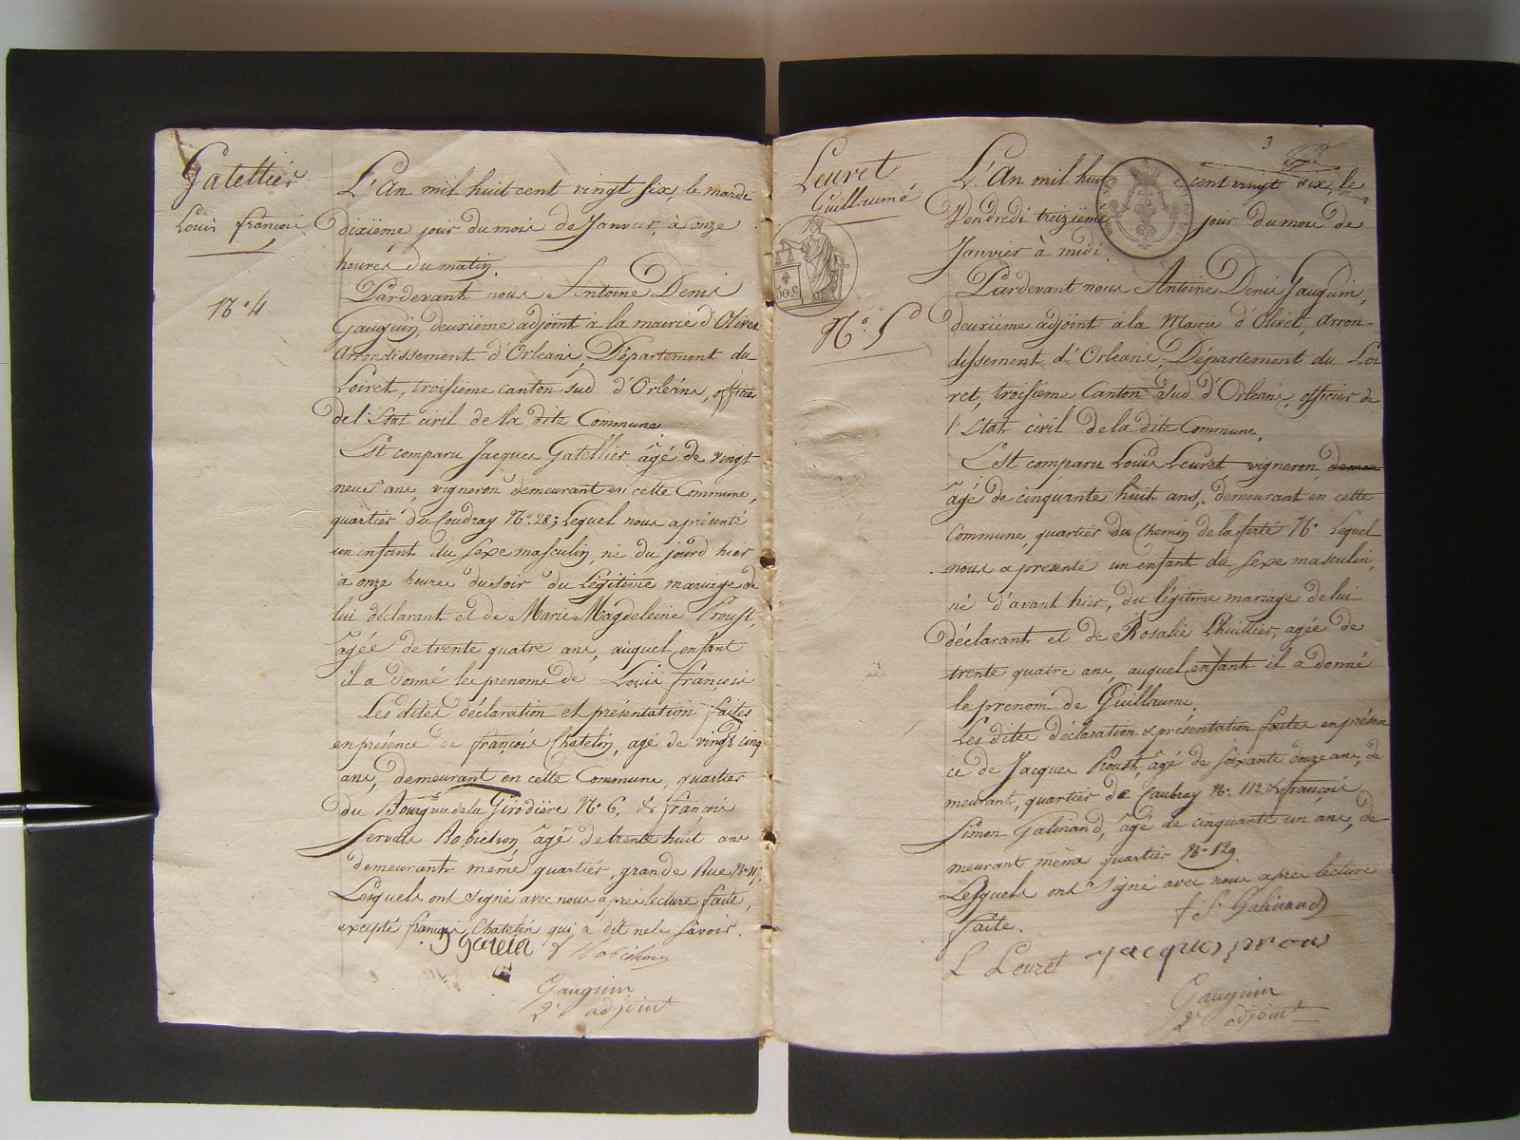 Gatellier
Louis françois
N.º 4
L'An mil huit cent vingt six, le marde
dixième jour du mois de Janvier, à onze
heures du matin.
Pardevant nous Antoine Denis
Gauguin, deuxième adjoint à la mairie d'Olivet
arrondissement d'Orléans, Département du
Loiret, troisième canton sud d'Orléans, officier
de l'Etat civil de la dite Commune
Est comparu Jacques Gatellier âgé de vingt
neuf ans, vigneron demeurant en cette Commune,
quartier du Coudray Nº 283 Lequel nous a présenté
un enfant du sexe masculin, né du jourd hier
à onze heures du soir du légitime mariage de
lui déclarant et de Marie Magdeleine Proust,
âgée de trente quatre ans, auquel enfant
il a donné les prenoms de Louis françois
Les dites déclaration et présentation faites
en présence de françois Chatelin, agé de vingt cinq
ans, demeurant en cette Commune, quartier
du Bourg de la Girodière Nº 6, & françois
Servais Robichon, âgé de trente huit ans
demeurant même quartier, grande Rue
Lesquels ont signé avec nous après lecture faite,
excepté françois Chatelin qui a dit ne le savoir.
Robichon
Gauguin
2e adjoint
3
Leuret
Guillaumé
N.º 5
L'An mil huit cent vingt six, le
Vendredi treizième jour du mois de
Janvier à midi.
Pardevant nous Antoine Denis Gauguin,
deuxième adjoint à la Mairie d'Olivet, arron-
dissement d'Orléans, Département du Loi
ret, troisième Canton Sud d'Orléans, officier de
l'Etat civil de la dite Commune.
Est comparu Louis Leuret vigneron
âgé de cinquante huit ans, demeurant en cette
Commune, quartier du Chemin de la ferté Nº Lequel
nous a présenté un enfant du sexe masculin,
né d'avant hier, du légitime mariage de lui
déclarant et de Rosalie Lhuillier, agée de
trente quatre ans, auquel enfant il a donné
le prenom de Guillaume.
Les dites déclaration & présentation faites en présen
ce de Jacques Proust, âgé de soixante onze ans, de
meurant, quartier de Caubray Nº 112 & françois
Simon Galinand, âgé de cinquante un ans, de-
meurant même quartier Nº 129.
Lesquels ont signé avec nous après lecture
faite.
f S Galinand
L Leuret Jacques prous
Gauguin
2e adjoint